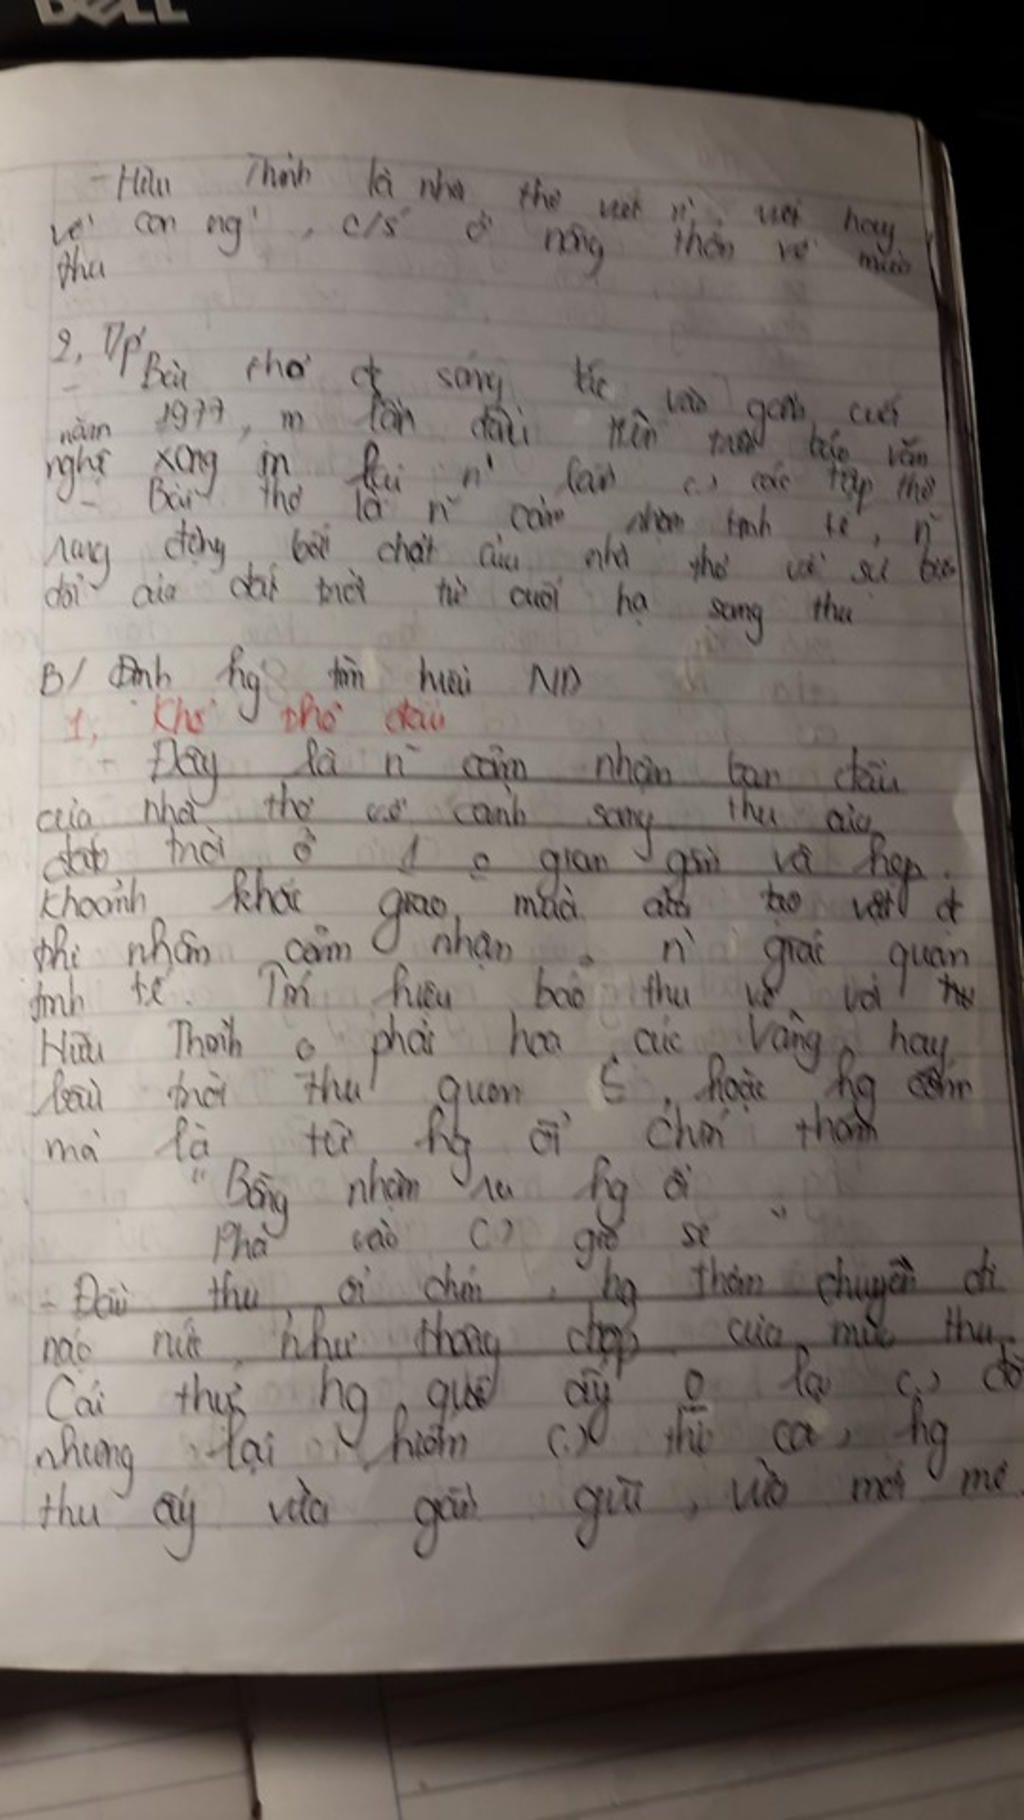 DELL
- Hữu Thỉnh là nhà thơ viết n`, viết hay
về con ng`, c/s ở nông thôn về mùa
thu
2, T/p'
- Bài thơ đc sáng tác vào gần cuối
năm 1977, in lần đầu tiên trên báo văn
nghệ xong in lại n` lần ( ) các tập thơ
- Bài thơ là n~ cảm nhận tinh tế, n~
rung động bất chợt của nhà thơ về sự biến
đổi của đất trời từ cuối hạ sang thu
B/ Định hg' tìm hiểu ND
1, Khổ thơ đầu
- Đây là n~ cảm nhận ban đầu
của nhà thơ về cảnh sang thu của
đất trời ở 1 o gian gần và hẹp.
Khoảnh khắc giao mùa của tạo vật đc
thi nhân cảm nhận = n` giác quan
tinh tế. Tín hiệu báo thu về với
Hữu Thỉnh o phải hoa cúc vàng hay
bầu trời thu quen, hoặc hg cốm
mà là từ hg ổi chín thơm
"Bỗng nhận ra hg ổi
Phả vào ( ) gió se"
- Đầu thu ổi chín, hg thơm chuyển đi
náo nức như thông điệp của mùa thu.
Cái thứ hg quê ấy o lạ ( ) đời
nhưng lại hiếm ( ) thi ca, hg
thu ấy vừa gần gũi, vừa mới mẻ.